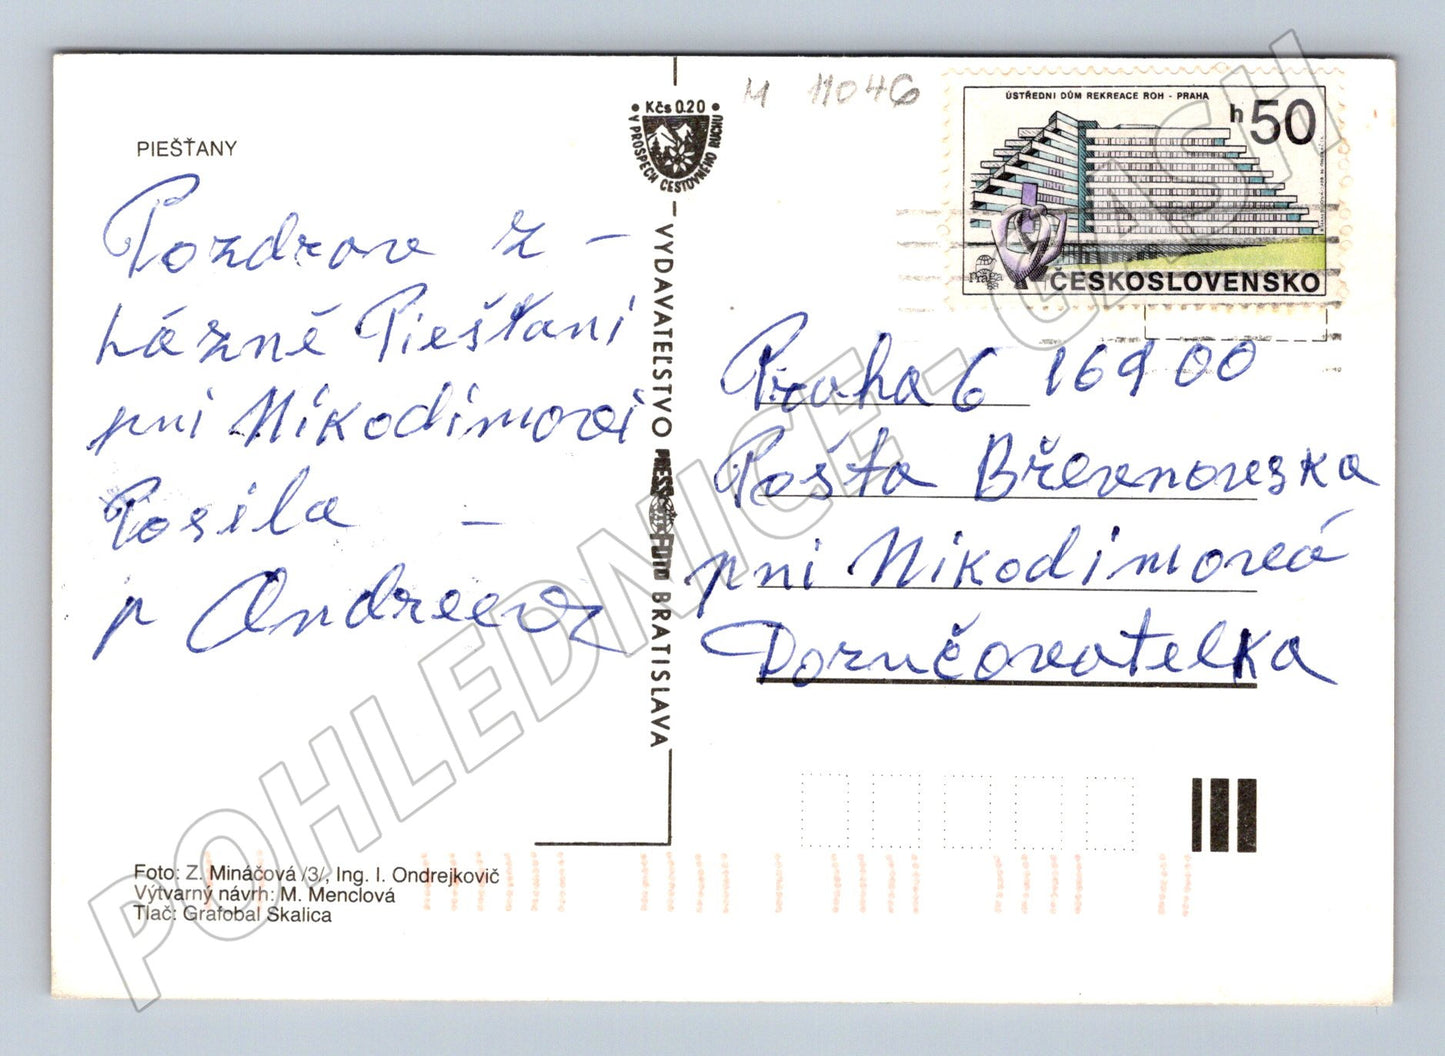 PIEŠŤANY
Pozdrav z -
Lázně Piešťani
pni Nikodimovi
Posila -
p Andreeva
Foto: Z. Mináčová /3/, Ing. I. Ondrejkovič
Výtvarný návrh: M. Menclová
Tlač: Grafobal Skalica
Kčs 0.20
V PROSPECH CESTOVNÉHO RUCHU
VYDAVATEĽSTVO PRESSFOTO BRATISLAVA
M 11046
ÚSTŘEDNI DŮM REKREACE ROH - PRAHA
h50
praga
ČESKOSLOVENSKO
Praha 6 169 00
Pošta Břevnovska
pni Nikodimová
Doručovatelka
POHLEDNICE - CASH